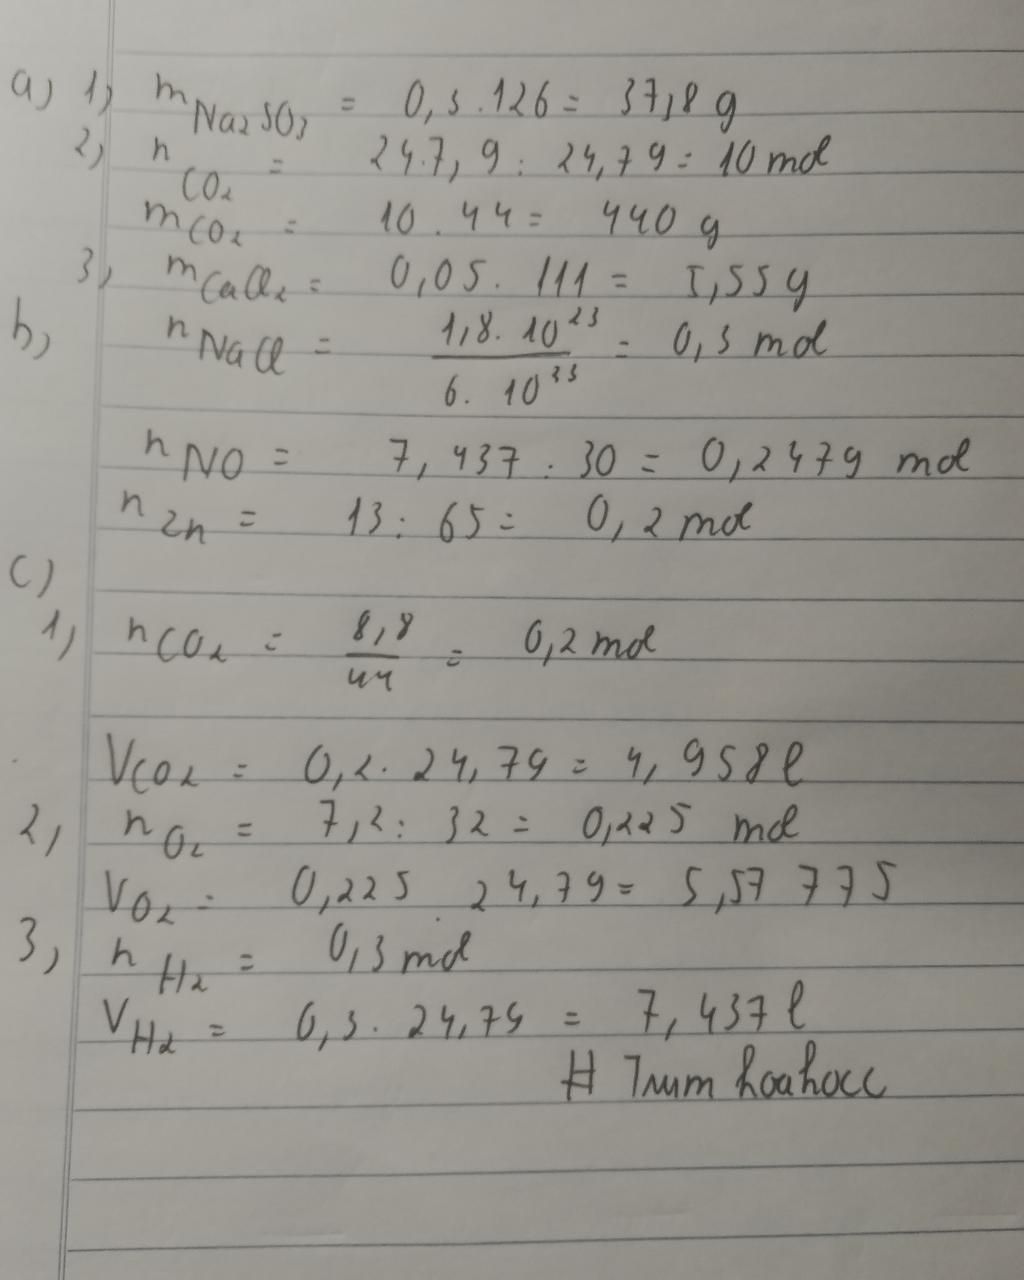 a) 1) m Na₂SO₃ = 0,3.126 = 37,8 g
2) n CO₂ = 24.7,9 : 24,79 = 10 mol
m CO₂ = 10 . 44 = 440 g
3) m CaCl₂ = 0,05 . 111 = 5,55 g
b) n NaCl = 1,8. 10²³ / 6. 10³³ = 0,3 mol
n NO = 7,437 . 30 = 0,2479 mol
n Zn = 13 : 65 = 0,2 mol
c)
1) n CO₂ = 8,8 / 44 = 0,2 mol
V CO₂ = 0,2. 24,79 = 4,958 l
2) n O₂ = 7,2 : 32 = 0,225 mol
V O₂ = 0,225 24,79 = 5,57 775
3) n H₂ = 0,3 mol
V H₂ = 0,3. 24,79 = 7,437 l
# hoahocc